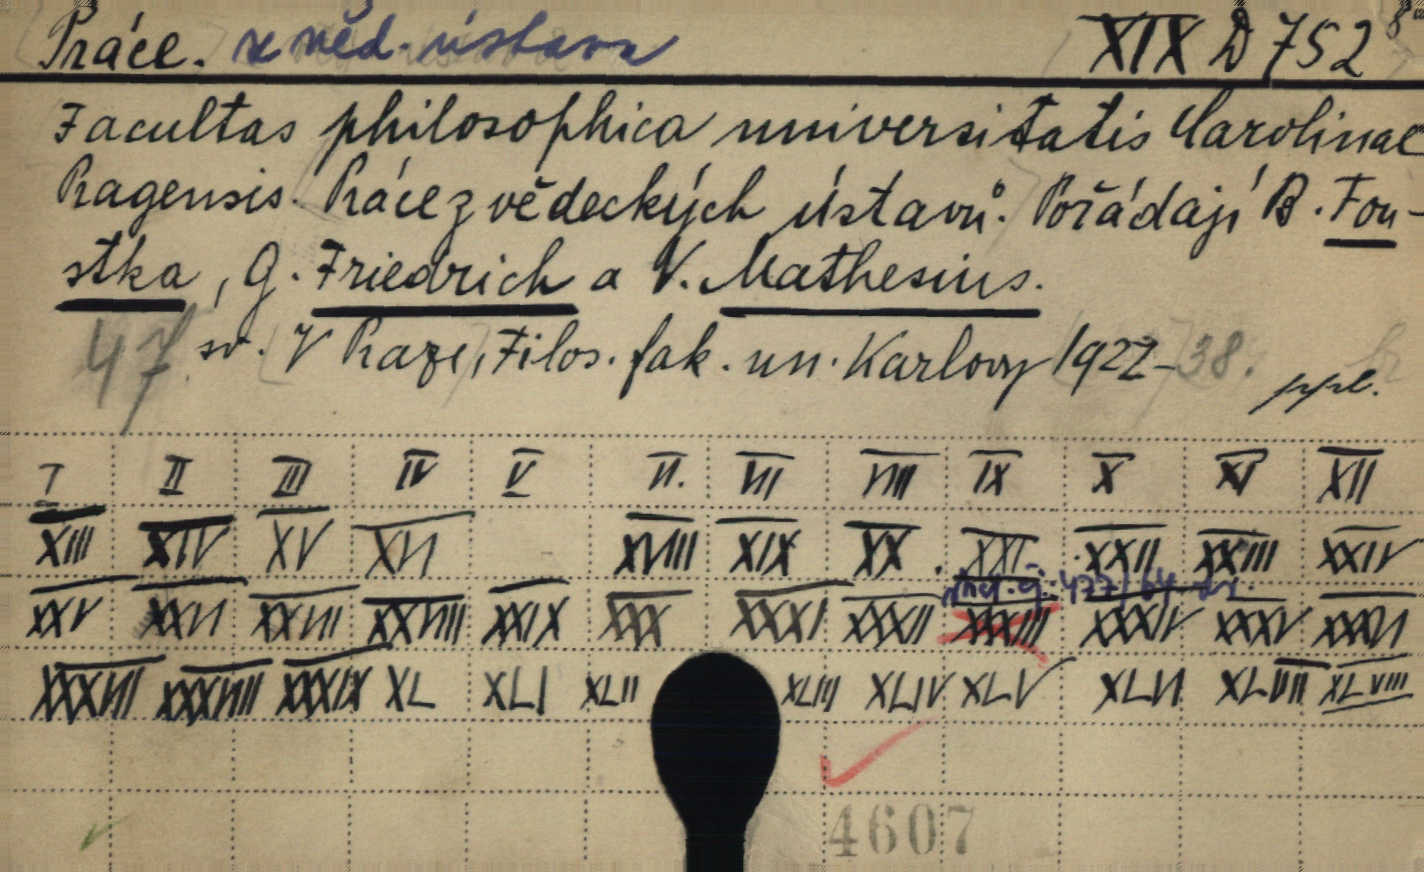 Práce. z věd. ústavů XIX D 752
Facultas philosophica universitatis Carolinae
Pragensis. Práce z vědeckých ústavů. Pořádají B. Fou-
stka, G. Friedrich a V. Mathesius.
47 sv. V Praze, Filos. fak. un. Karlovy 1922-38.
ppl.
I II III IV V VI. VII VIII IX X XI XII
XIII XIV XV XVI XVIII XIX XX XXI XXII XXIII XXIV
477/64
XXV XXVI XXVII XXVIII XXIX XXX XXXI XXXII XXXIII XXXIV XXXV XXXVI
XXXVII XXXVIII XXXIX XL XLI XLII XLIII XLIV XLV XLVI XLVII XLVIII
4607